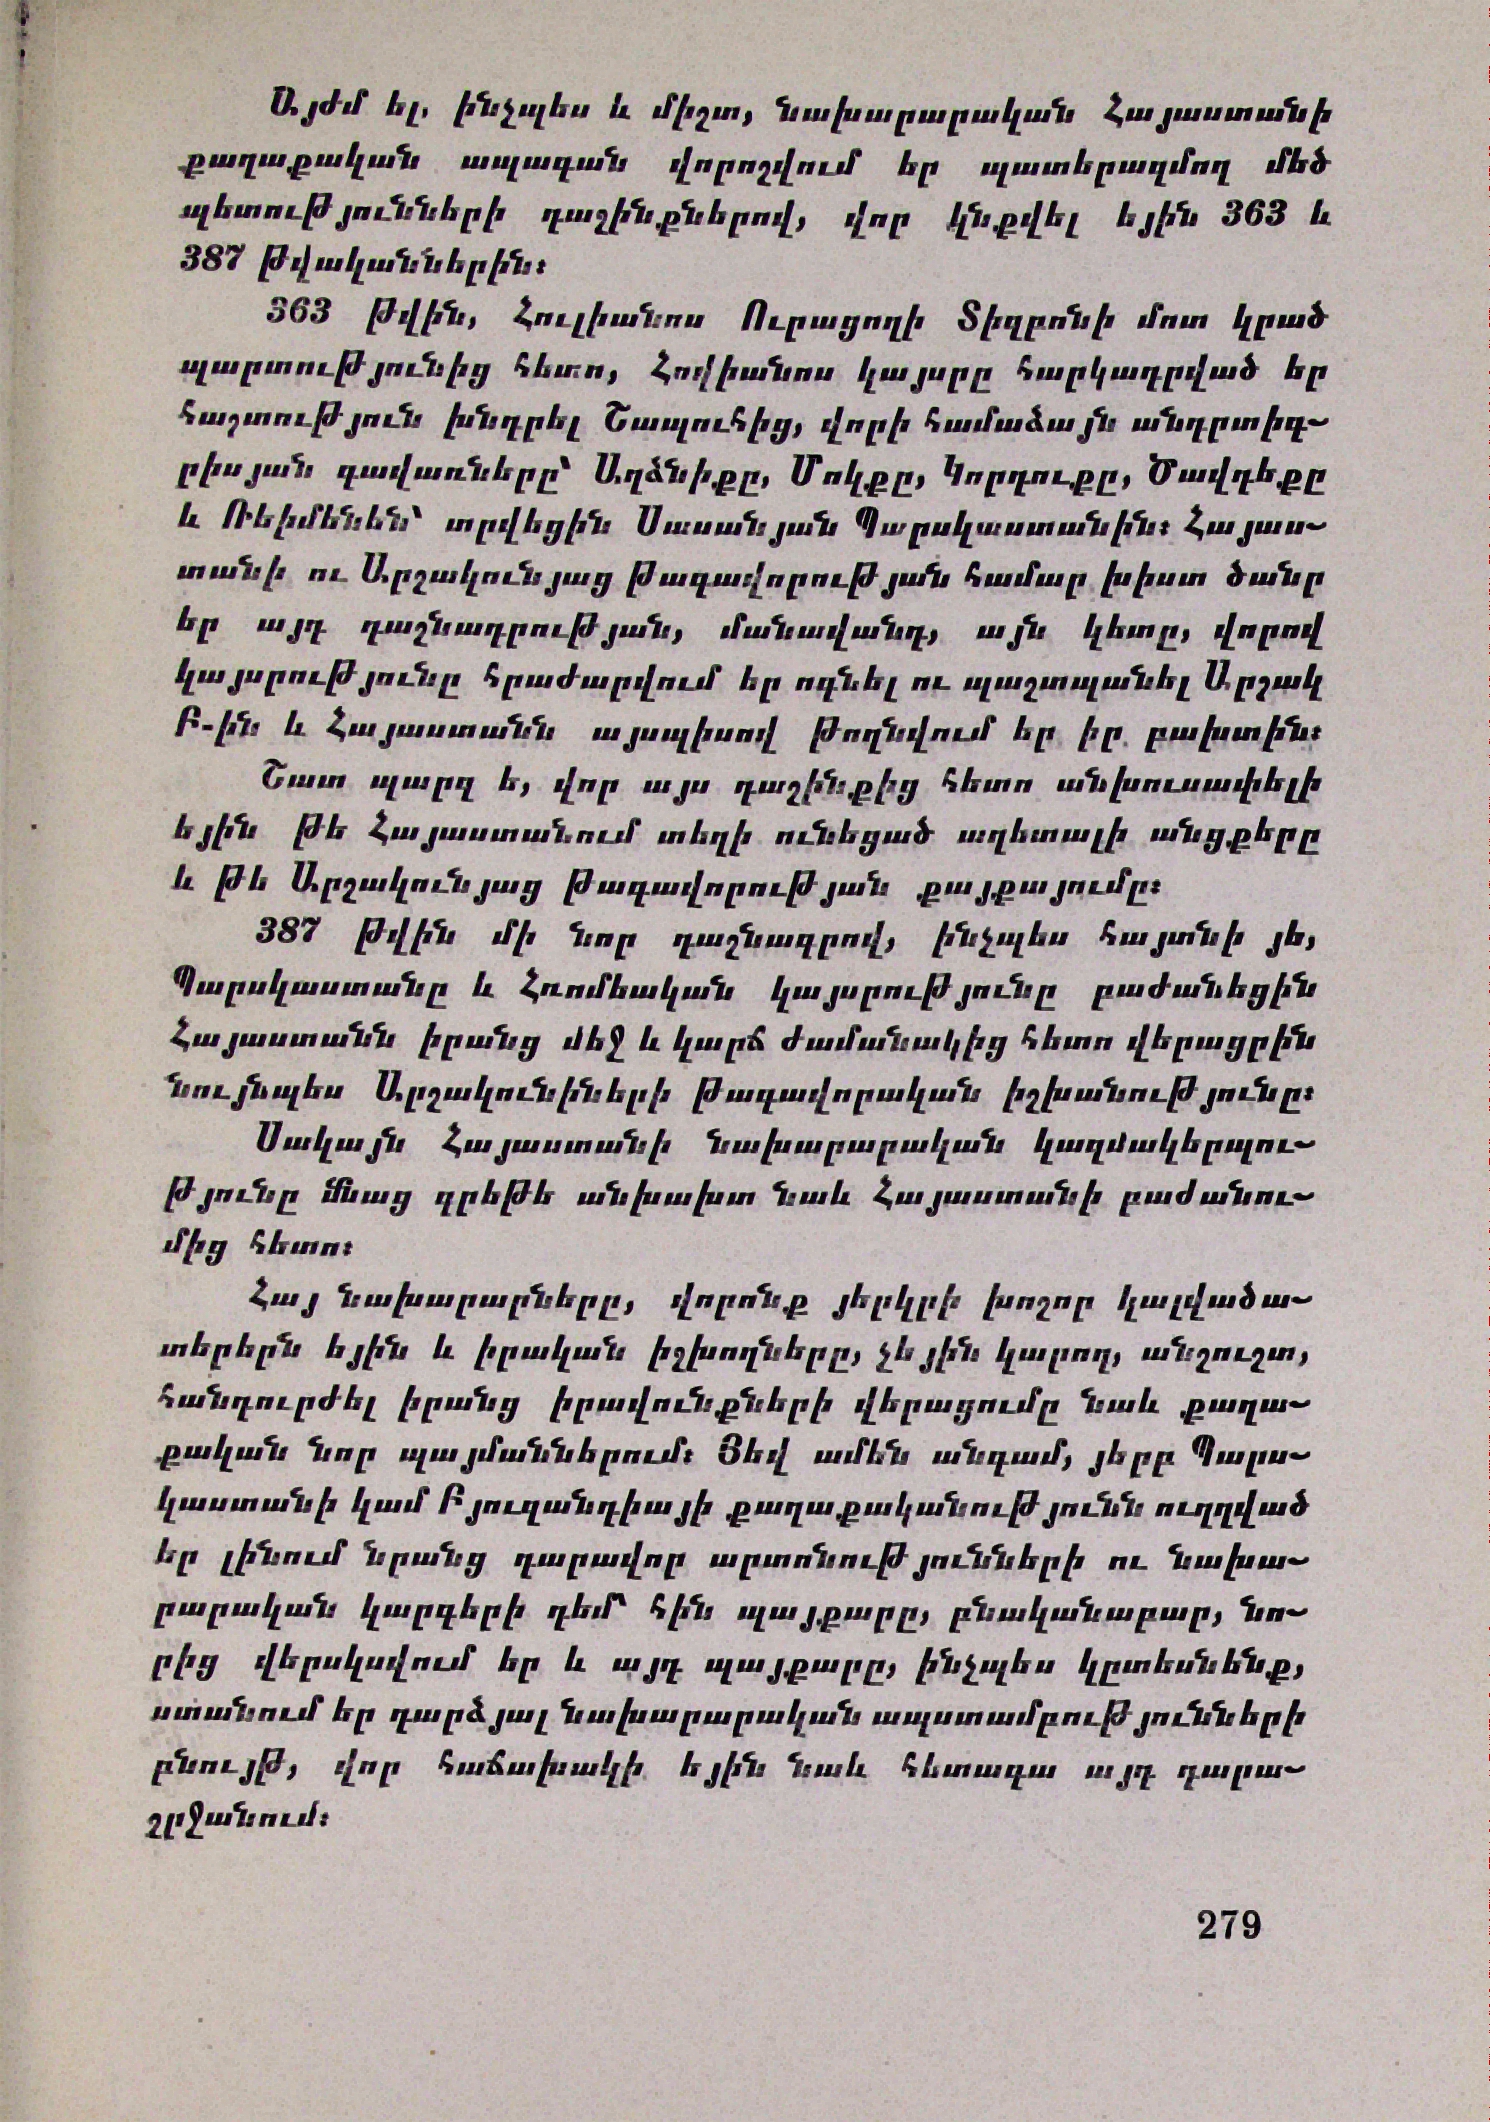 Այժմ ել, ինչպես և միշտ, նախարարական Հայաստանի
քաղաքական ապագան վորոշվում եր պատերազմող մեծ
պետությունների դաշինքներով, վոր կնքվել եյին 363 և
387 թվականներին։
363 թվին, Հուլիանոս Ուրացողի Տիզբոնի մոտ կրած
պարտությունից հետո, Հովիանոս կայսրը հարկադրված եր
հաշտություն խնդրել Շապուհից, վորի համաձայն անդրտիգ-
րիսյան գավառները՝ Աղձնիքը, Մոկքը, Կորդուքը, Ծավդեքը
և Ռեհիմենեն՝ տրվեցին Սասանյան Պարսկաստանին։ Հայաս-
տանի ու Արշակունյաց թագավորության համար խիստ ծանր
եր այդ դաշնադրության, մանավանդ, այն կետը, վորով
կայսրությունը հրաժարվում եր ոգնել ու պաշտպանել Արշակ
Բ-ին և Հայաստանն այսպիսով թողնվում եր իր բախտին։
Շատ պարզ ե, վոր այս դաշինքից հետո անխուսափելի
եյին թե Հայաստանում տեղի ունեցած աղետալի անցքերը
և թե Արշակունյաց թագավորության քայքայումը։
387 թվին մի նոր դաշնագրով, ինչպես հայտնի յե,
Պարսկաստանը և Հռոմեական կայսրությունը բաժանեցին
Հայաստանն իրանց մեջ և կարճ ժամանակից հետո վերացրին
նույնպես Արշակունիների թագավորական իշխանությունը։
Սակայն Հայաստանի նախարարական կազմակերպու-
թյունը մնաց գրեթե անխախտ նաև Հայաստանի բաժանու-
մից հետո։
Հայ նախարարները, վորոնք յերկրի խոշոր կալվածա-
տերերն եյին և իրական իշխողները, չեյին կարող, անշուշտ,
հանդուրժել իրանց իրավունքների վերացումը նաև քաղա-
քական նոր պայմաններում։ Յեվ ամեն անգամ, յերբ Պարս-
կաստանի կամ Բյուզանդիայի քաղաքականությունն ուղղված
եր լինում նրանց դարավոր արտոնությունների ու նախա-
րարական կարգերի դեմ՝ հին պայքարը, բնականաբար, նո-
րից վերսկսվում եր և այդ պայքարը, ինչպես կըտեսնենք,
ստանում եր դարձյալ նախարարական ապստամբությունների
բնույթ, վոր հաճախակի եյին նաև հետագա այդ դարա-
շրջանում։
279